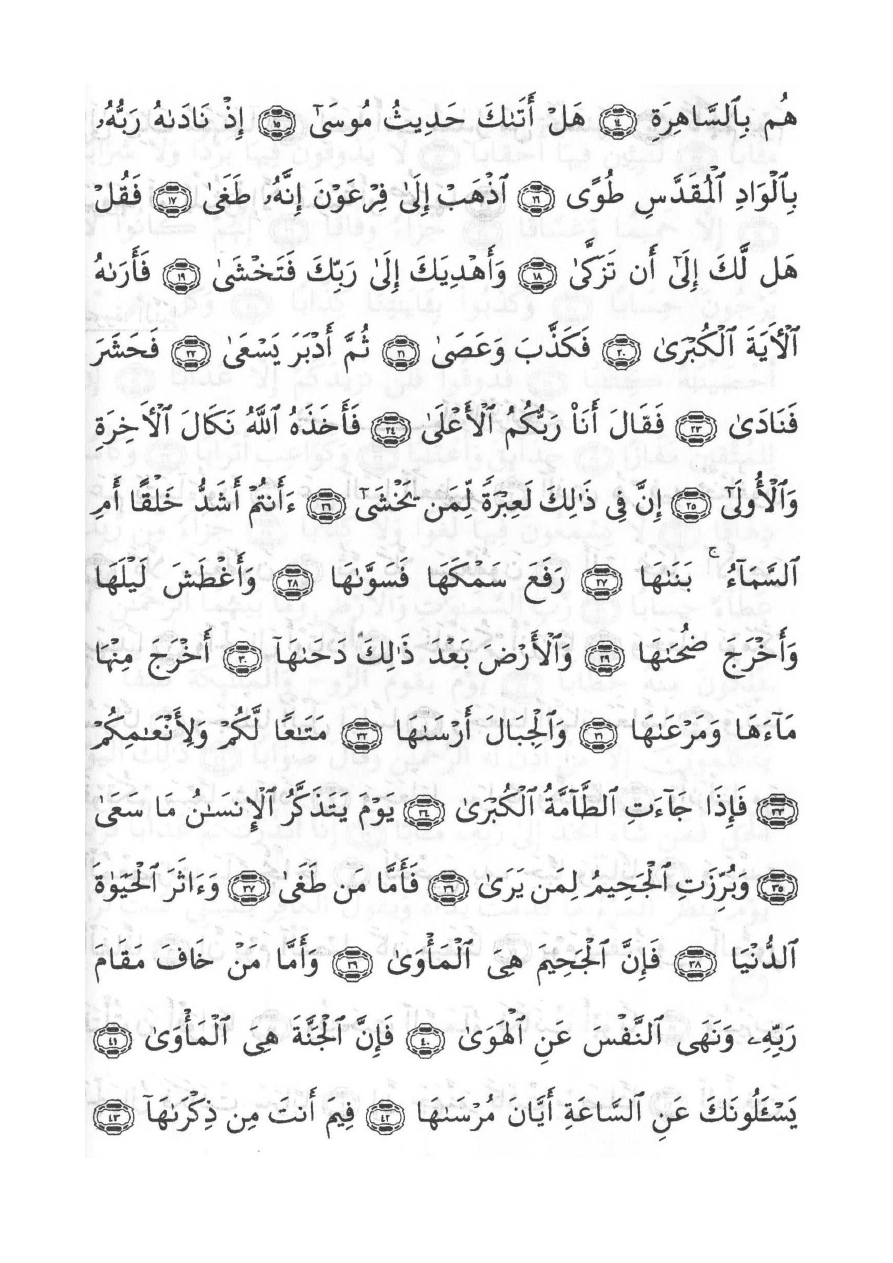 هُم بِٱلسَّاهِرَةِ ١٤ هَلْ أَتَىٰكَ حَدِيثُ مُوسَىٰٓ ١٥ إِذْ نَادَىٰهُ رَبُّهُۥ
بِٱلْوَادِ ٱلْمُقَدَّسِ طُوًى ١٦ ٱذْهَبْ إِلَىٰ فِرْعَوْنَ إِنَّهُۥ طَغَىٰ ١٧ فَقُلْ
هَل لَّكَ إِلَىٰٓ أَن تَزَكَّىٰ ١٨ وَأَهْدِيَكَ إِلَىٰ رَبِّكَ فَتَخْشَىٰ ١٩ فَأَرَىٰهُ
ٱلْأَيَةَ ٱلْكُبْرَىٰ ٢٠ فَكَذَّبَ وَعَصَىٰ ٢١ ثُمَّ أَدْبَرَ يَسْعَىٰ ٢٢ فَحَشَرَ
فَنَادَىٰ ٢٣ فَقَالَ أَنَا۠ رَبُّكُمُ ٱلْأَعْلَىٰ ٢٤ فَأَخَذَهُ ٱللَّهُ نَكَالَ ٱلْأَخِرَةِ
وَٱلْأُولَىٰٓ ٢٥ إِنَّ فِي ذَٰلِكَ لَعِبْرَةً لِّمَن يَخْشَىٰٓ ٢٦ ءَأَنتُمْ أَشَدُّ خَلْقًا أَمِ
ٱلسَّمَآءُ ۚ بَنَىٰهَا ٢٧ رَفَعَ سَمْكَهَا فَسَوَّىٰهَا ٢٨ وَأَغْطَشَ لَيْلَهَا
وَأَخْرَجَ ضُحَىٰهَا ٢٩ وَٱلْأَرْضَ بَعْدَ ذَٰلِكَ دَحَىٰهَآ ٣٠ أَخْرَجَ مِنْهَا
مَآءَهَا وَمَرْعَىٰهَا ٣١ وَٱلْجِبَالَ أَرْسَىٰهَا ٣٢ مَتَٰعًا لَّكُمْ وَلِأَنْعَٰمِكُمْ
٣٣ فَإِذَا جَآءَتِ ٱلطَّآمَّةُ ٱلْكُبْرَىٰ ٣٤ يَوْمَ يَتَذَكَّرُ ٱلْإِنسَٰنُ مَا سَعَىٰ
٣٥ وَبُرِّزَتِ ٱلْجَحِيمُ لِمَن يَرَىٰ ٣٦ فَأَمَّا مَن طَغَىٰ ٣٧ وَءَاثَرَ ٱلْحَيَوٰةَ
ٱلدُّنْيَا ٣٨ فَإِنَّ ٱلْجَحِيمَ هِيَ ٱلْمَأْوَىٰ ٣٩ وَأَمَّا مَنْ خَافَ مَقَامَ
رَبِّهِۦ وَنَهَى ٱلنَّفْسَ عَنِ ٱلْهَوَىٰ ٤٠ فَإِنَّ ٱلْجَنَّةَ هِيَ ٱلْمَأْوَىٰ ٤١
يَسْـَٔلُونَكَ عَنِ ٱلسَّاعَةِ أَيَّانَ مُرْسَىٰهَا ٤٢ فِيمَ أَنتَ مِن ذِكْرَىٰهَآ ٤٣